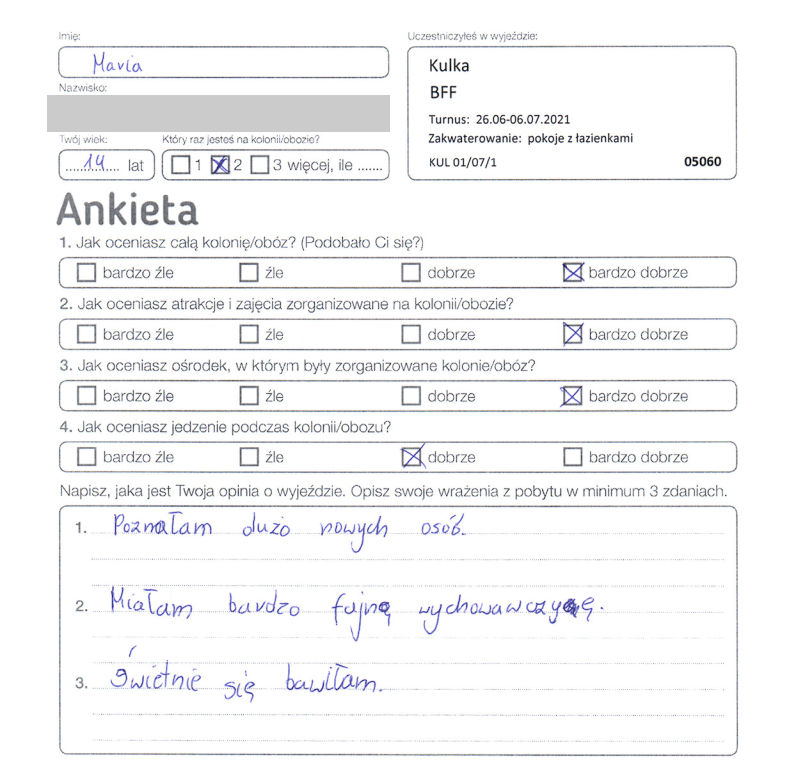 Imię:
Maria
Nazwisko:
Twój wiek:
14 lat
Który raz jesteś na kolonii/obozie?
1 2 3 więcej, ile .......
Uczestniczyłeś w wyjeździe:
Kulka
BFF
Turnus: 26.06-06.07.2021
Zakwaterowanie: pokoje z łazienkami
KUL 01/07/1 05060
Ankieta
1. Jak oceniasz całą kolonię/obóz? (Podobało Ci się?)
bardzo źle źle dobrze bardzo dobrze
2. Jak oceniasz atrakcje i zajęcia zorganizowane na kolonii/obozie?
bardzo źle źle dobrze bardzo dobrze
3. Jak oceniasz ośrodek, w którym były zorganizowane kolonie/obóz?
bardzo źle źle dobrze bardzo dobrze
4. Jak oceniasz jedzenie podczas kolonii/obozu?
bardzo źle źle dobrze bardzo dobrze
Napisz, jaka jest Twoja opinia o wyjeździe. Opisz swoje wrażenia z pobytu w minimum 3 zdaniach.
1. Poznałam dużo nowych osób.
2. Miałam bardzo fajną
3. Świetnie się bawiłam.